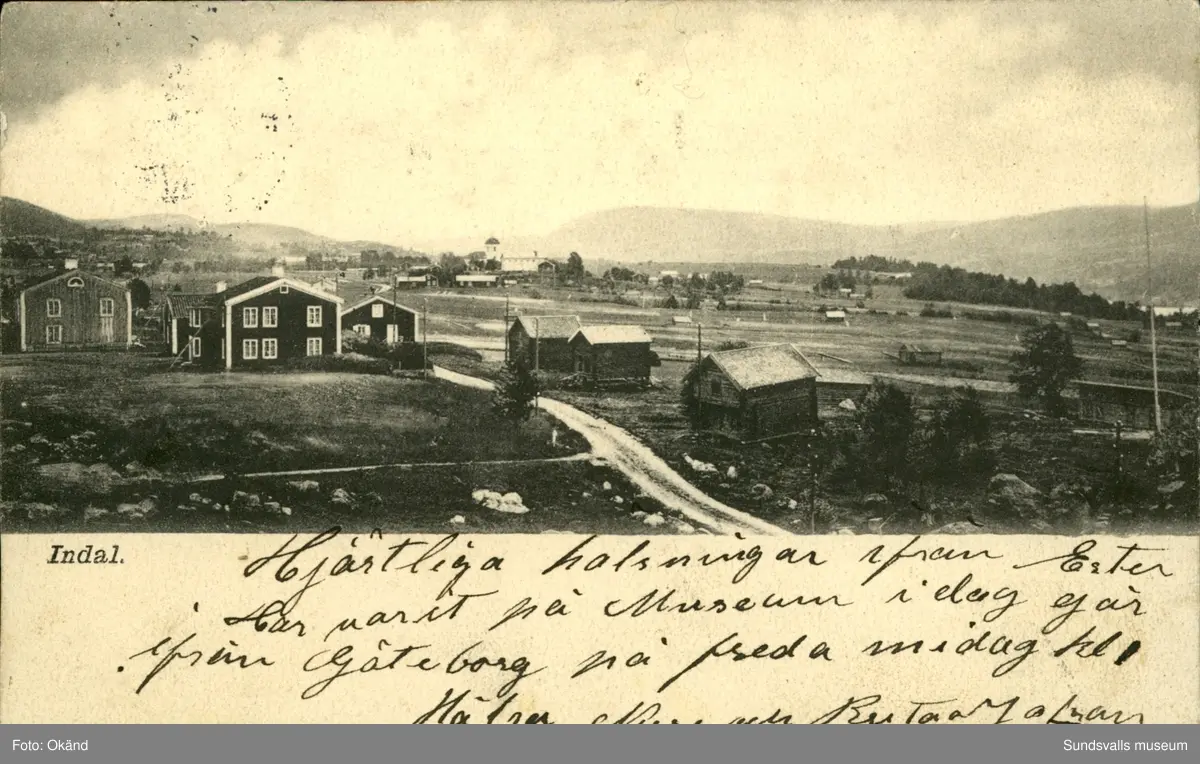 Indal.
Hjärtliga halsningar ifran Ester
Har varit på Museum idag går
ifrån Göteborg på freda midag kl 1
Hälsa
Foto: Okänd
Sundsvalls museum